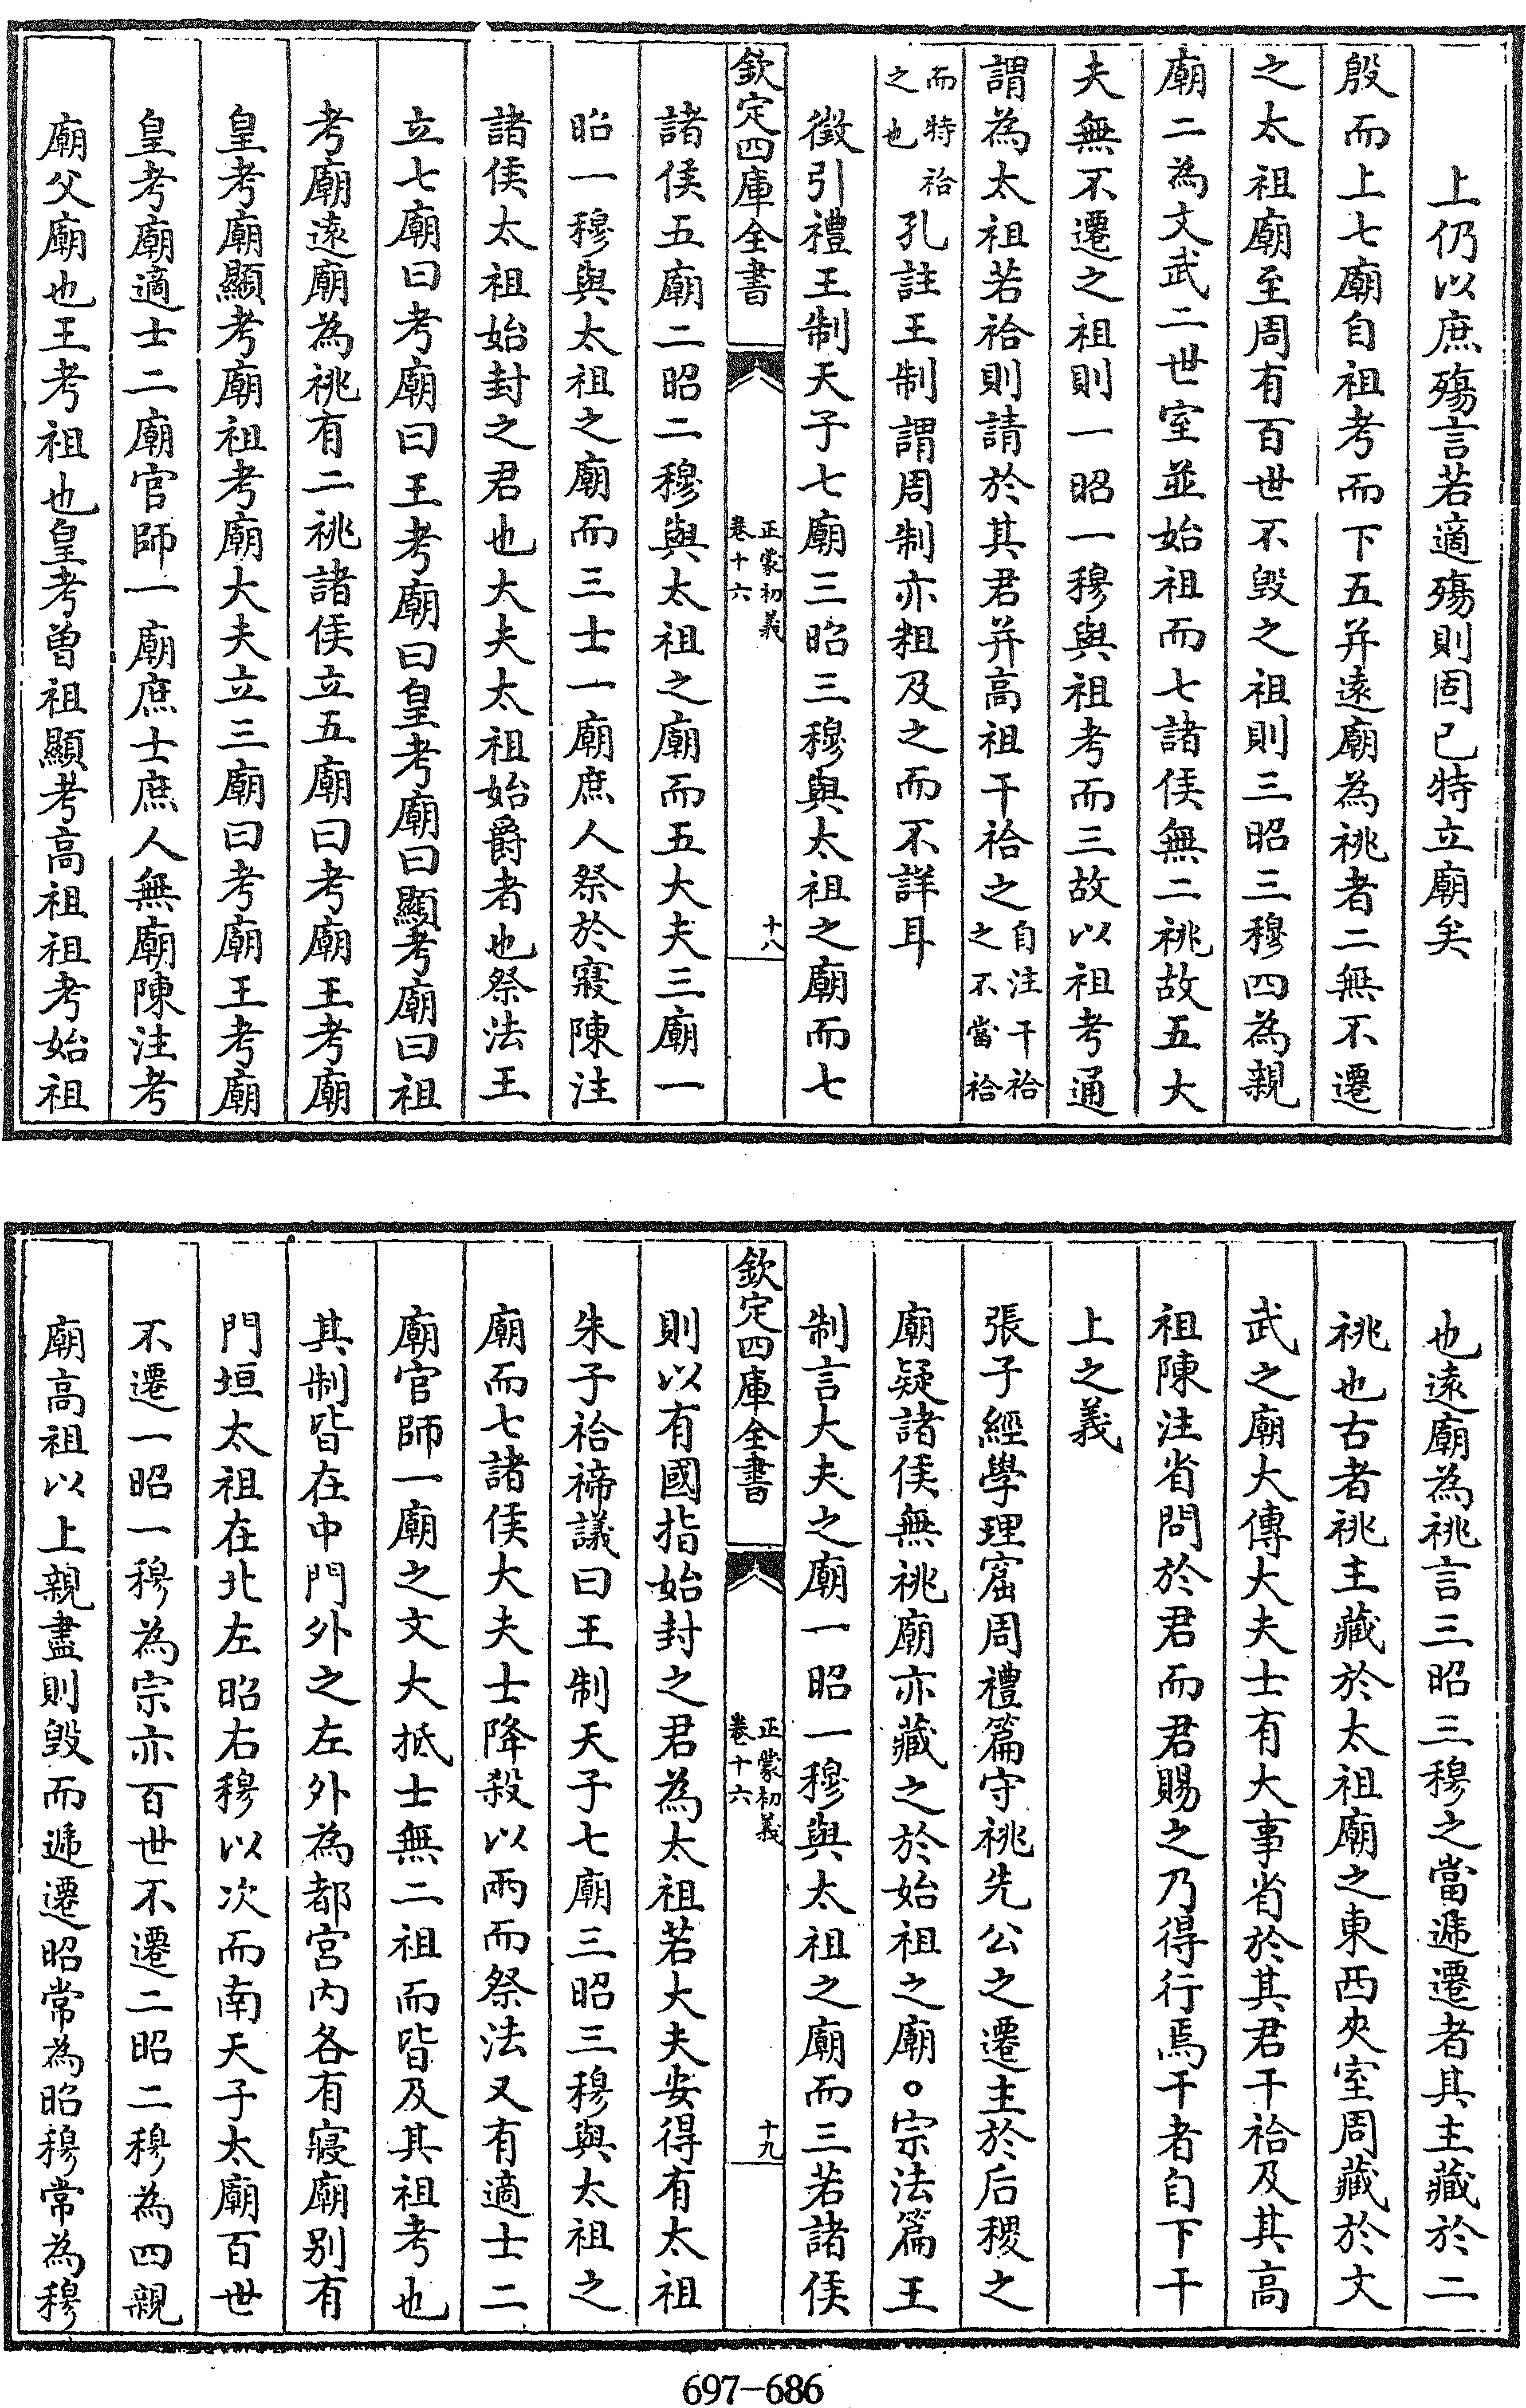 上仍以庶殤言若適殤則固已特立廟矣
殷而上七廟自祖考而下五并遠廟為祧者二無不遷
之太祖廟至周有百世不毀之祖則三昭三穆四為親
廟二為文武二世室並始祖而七諸侯無二祧故五大
夫無不遷之祖則一昭一穆與祖考而三故以祖考通
謂為太祖若祫則請於其君并高祖干祫之自注干祫之不當祫
而特祫之也孔註王制謂周制亦粗及之而不詳耳
徵引禮王制天子七廟三昭三穆與太祖之廟而七
欽定四庫全書
正蒙初義
卷十六
十八
諸侯五廟二昭二穆與太祖之廟而五大夫三廟一
昭一穆與太祖之廟而三士一廟庶人祭於寢陳注
諸侯太祖始封之君也大夫太祖始爵者也祭法王
立七廟曰考廟曰王考廟曰皇考廟曰顯考廟曰祖
考廟遠廟為祧有二祧諸侯立五廟曰考廟王考廟
皇考廟顯考廟祖考廟大夫立三廟曰考廟王考廟
皇考廟適士二廟官師一廟庶士庶人無廟陳注考
廟父廟也王考祖也皇考曾祖顯考高祖祖考始祖
也遠廟為祧言三昭三穆之當遞遷者其主藏於二
祧也古者祧主藏於太祖廟之東西夾室周藏於文
武之廟大傳大夫士有大事省於其君干祫及其高
祖陳注省問於君而君賜之乃得行焉干者自下干
上之義
張子經學理窟周禮篇守祧先公之遷主於后稷之
廟疑諸侯無祧廟亦藏之於始祖之廟○宗法篇王
制言大夫之廟一昭一穆與太祖之廟而三若諸侯
欽定四庫全書
正蒙初義
卷十六
十九
則以有國指始封之君為太祖若大夫安得有太祖
朱子祫禘議曰王制天子七廟三昭三穆與太祖之
廟而七諸侯大夫士降殺以兩而祭法又有適士二
廟官師一廟之文大抵士無二祖而皆及其祖考也
其制皆在中門外之左外為都宮內各有寢廟別有
門垣太祖在北左昭右穆以次而南天子太廟百世
不遷一昭一穆為宗亦百世不遷二昭二穆為四親
廟高祖以上親盡則毀而遞遷昭常為昭穆常為穆
697-686